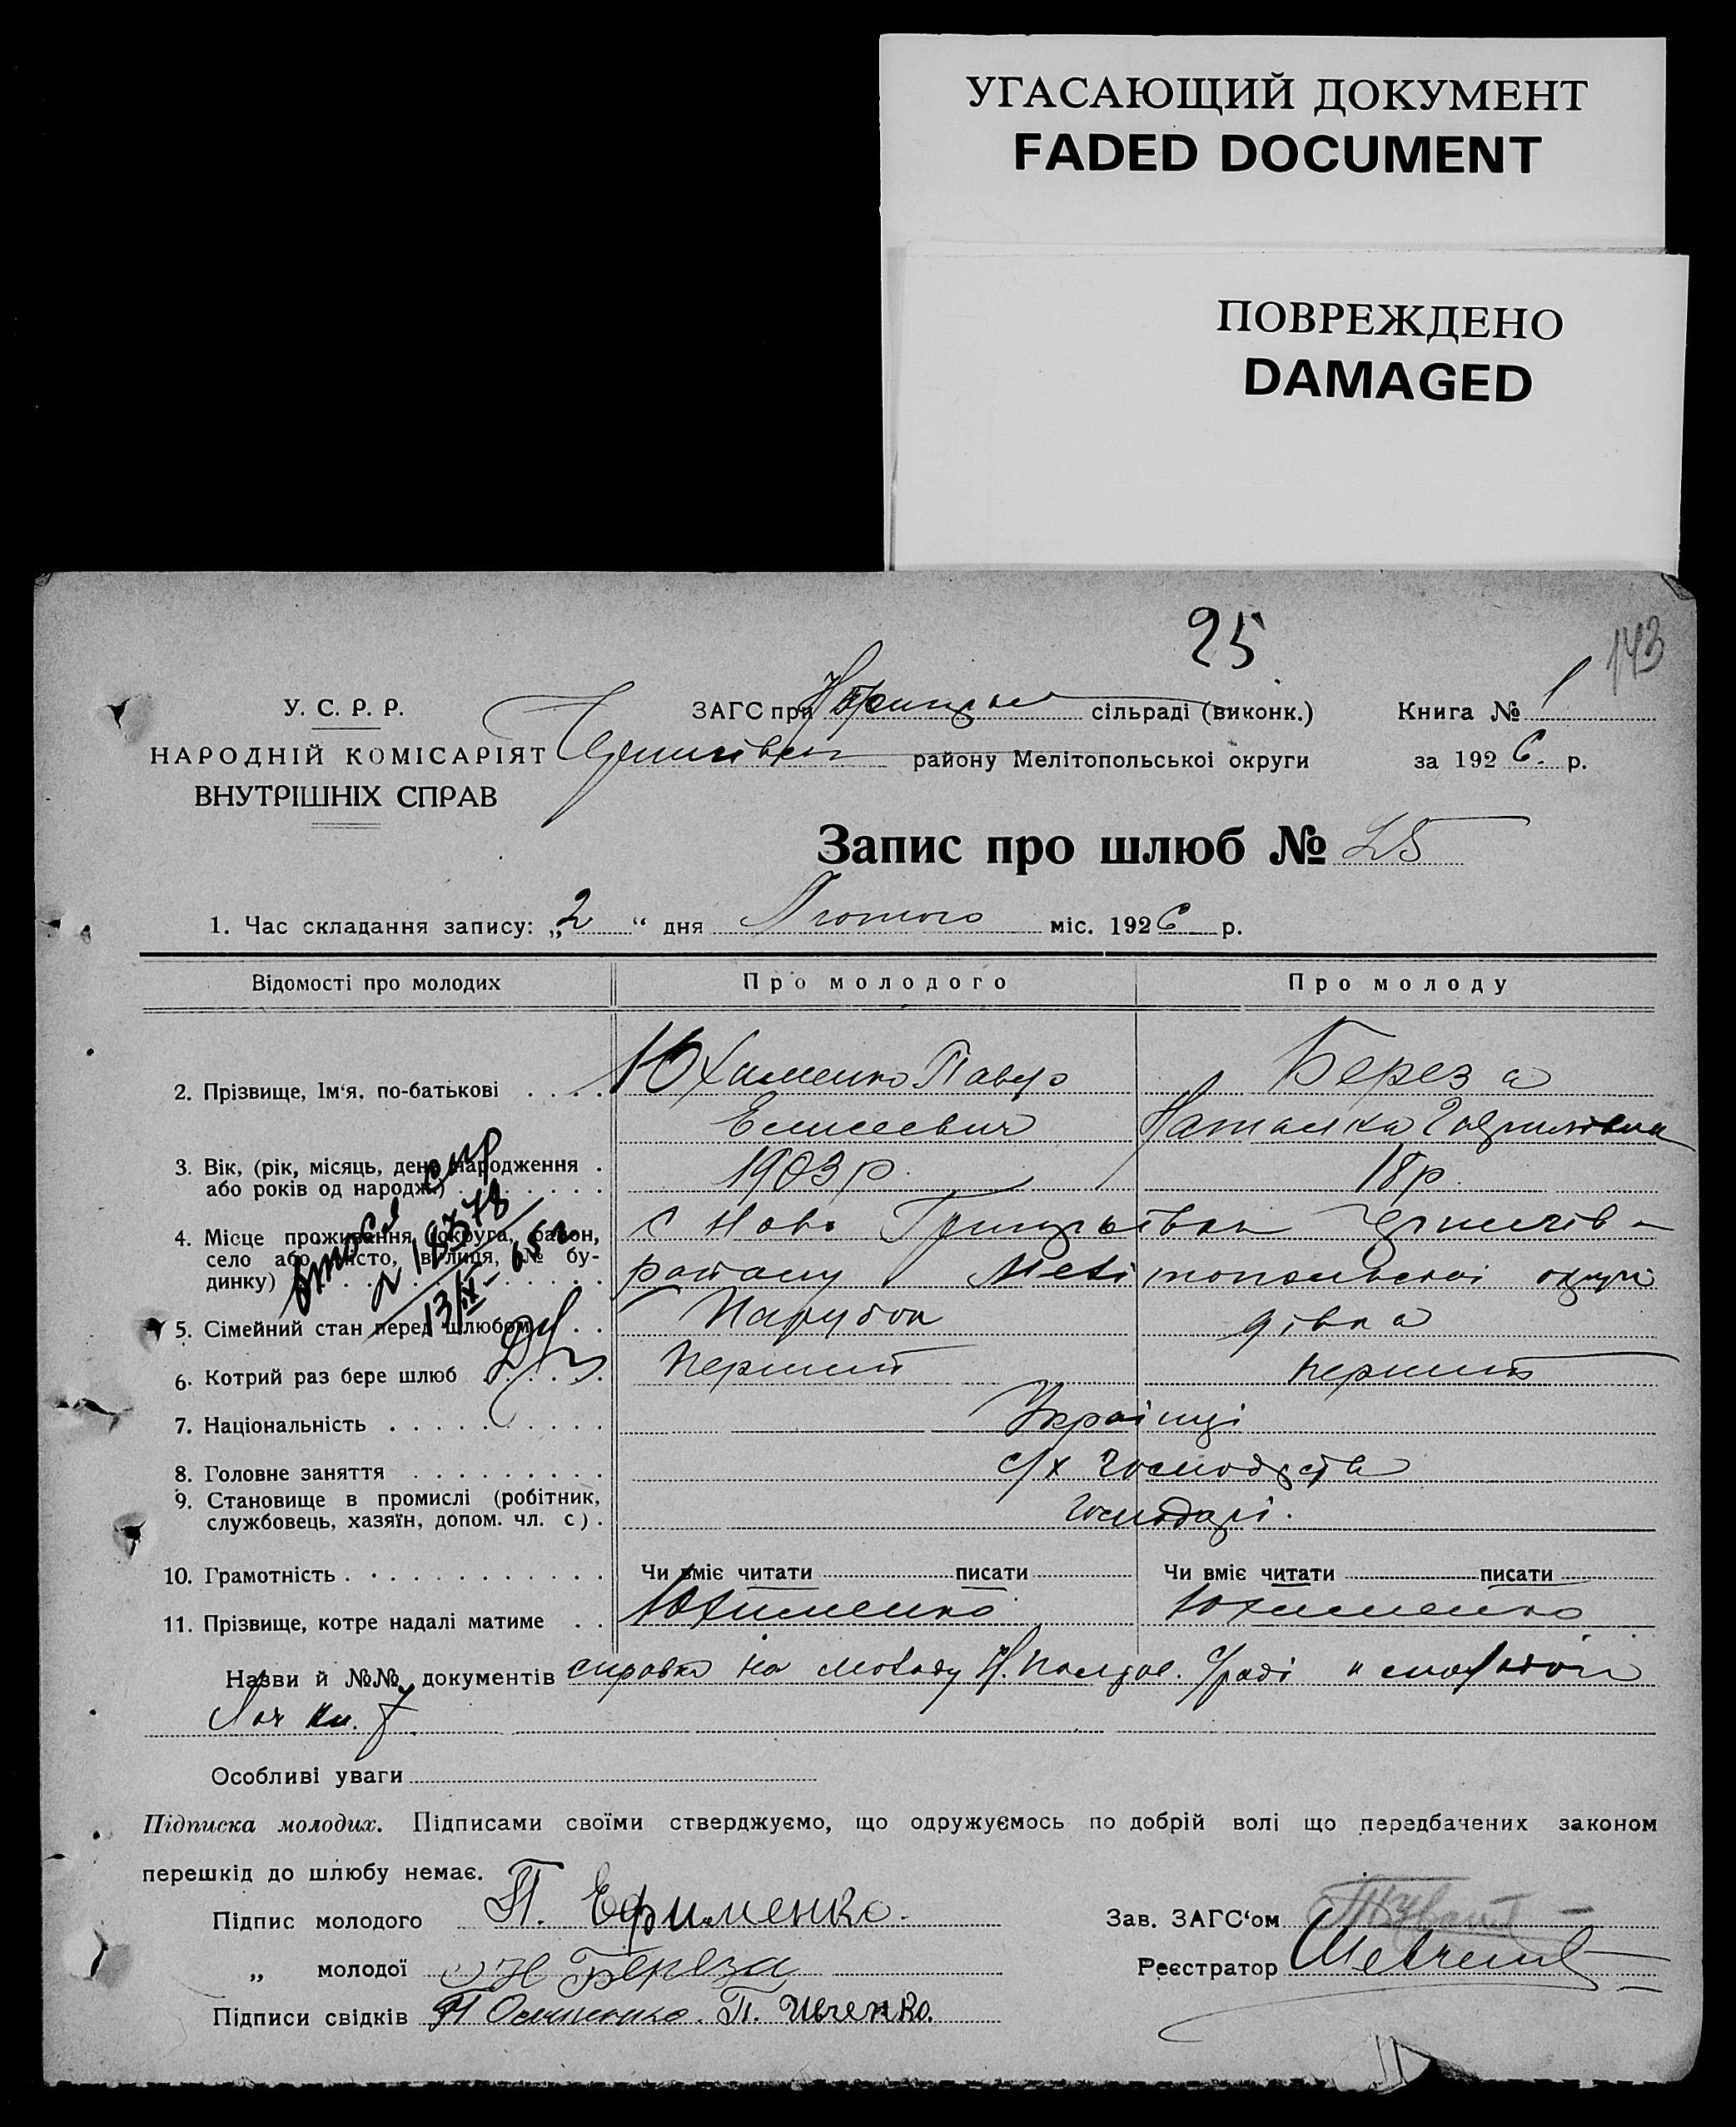 УГАСАЮЩИЙ ДОКУМЕНТ
FADED DOCUMENT
ПОВРЕЖДЕНО
DAMAGED
25
143
У. С. Р. Р.
НАРОДНІЙ КОМІСАРІЯТ
ВНУТРІШНІХ СПРАВ
ЗАГС при сільраді (виконк.)
Книга № 1
району Мелітопольської округи
за 1926 р.
Запис про шлюб № 25
1. Час складання запису: „2" дня Лютого міс. 1926 р.
Відомості про молодих
Про молодого
Про молоду
2. Прізвище, Ім'я, по-батькові
Юхименко Павло
Елисеевич
Береза
Наталка Гаврилівна
3. Вік, (рік, місяць, день народження
або років од народж.)
1903 р.
18 р.
4. Місце проживання (округа, район,
село або місто, вулиця, № бу-
динку)
с Ново Григорівка Чернигів-
району Мелітопольської округи
5. Сімейний стан перед шлюбом
Парубок
дівка
6. Котрий раз бере шлюб
Перший
перший
7. Національність
Українці
8. Головне заняття
с/х господарства
9. Становище в промислі (робітник,
службовець, хазяїн, допом. чл. с).
господарі.
10. Грамотність
Чи вміє читати писати
Чи вміє читати писати
11. Прізвище, котре надалі матиме
Юхименко
Юхименко
Назви й №№ документів справка на молоду
Особливі уваги
Підписка молодих. Підписами своїми стверджуємо, що одружуємось по добрій волі що передбачених законом
перешкід до шлюбу немає.
Підпис молодого П. Ефименко.
Зав. ЗАГС'ом
„ молодої Н Береза
Реєстратор
Підписи свідків П Осипенко. П. Ивченко.